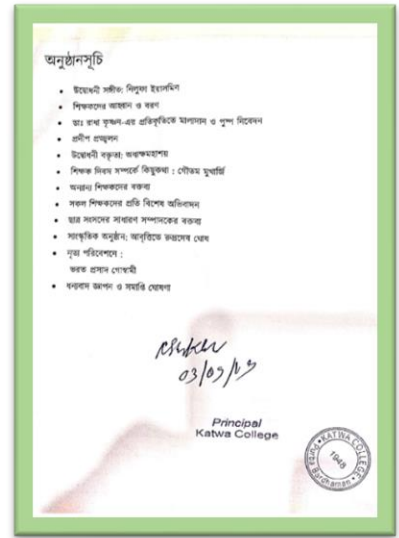 অনুষ্ঠানসূচি
উদ্বোধনী সঙ্গীত: নিলুফা ইয়াসমিন
শিক্ষকদের আহ্বান ও বরণ
ডাঃ রাধা কৃষ্ণন-এর প্রতিকৃতিতে মাল্যদান ও পুষ্প নিবেদন
প্রদীপ প্রজ্জ্বলন
উদ্বোধনী বক্তৃতা: অধ্যক্ষমহাশয়
শিক্ষক দিবস সম্পর্কে কিছুকথা : গৌতম মুখার্জি
অন্যান্য শিক্ষকদের বক্তব্য
সকল শিক্ষকদের প্রতি বিশেষ অভিবাদন
ছাত্র সংসদের সাধারণ সম্পাদকের বক্তব্য
সাংস্কৃতিক অনুষ্ঠান: আবৃত্তিতে রুদ্রদেব ঘোষ
নৃত্য পরিবেশনে :
ভরত প্রসাদ গোস্বামী
ধন্যবাদ জ্ঞাপন ও সমাপ্তি ঘোষণা
03/09/19
Principal
Katwa College
KATWA COLLEGE
1948
Purba Bardhaman